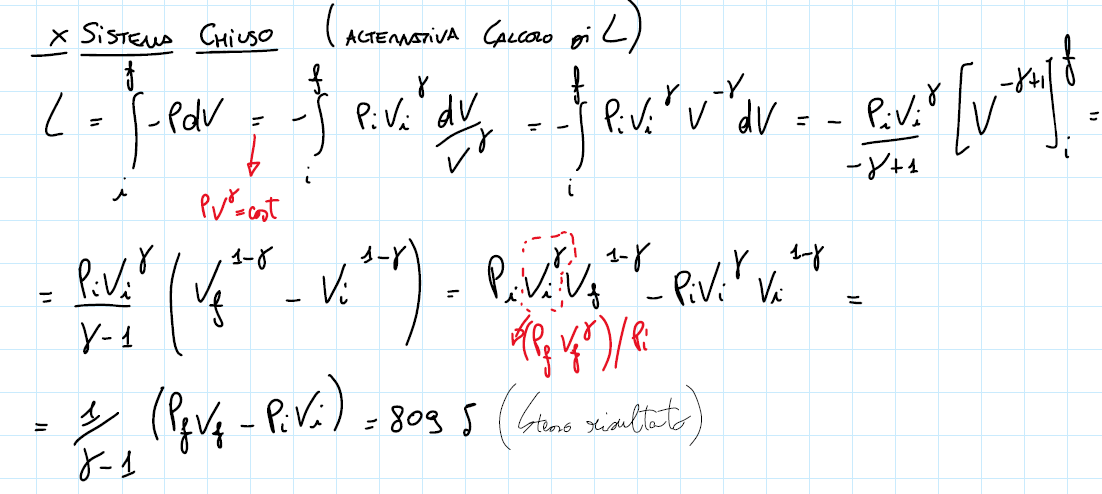 x SISTEMA CHIUSO (ALTERNATIVA CALCOLO DI L)
L = ∫_i^f -PdV = -∫_i^f PiVi^γ dV/V^γ = -∫_i^f PiVi^γ V^-γ dV = - PiVi^γ/(-γ+1) [V^(-γ+1)]_i^f =
PV^γ = cost
= PiVi^γ/(γ-1) (Vf^(1-γ) - Vi^(1-γ)) = PiVi^γ Vf^(1-γ) - PiVi^γ Vi^(1-γ) =
(Pf Vf^γ)/Pi
= 1/(γ-1) (PfVf - PiVi) = 809 J (stesso risultato)